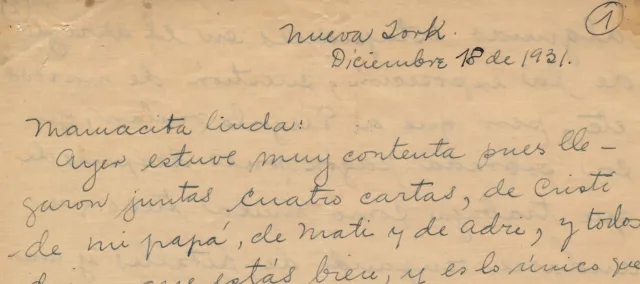 1
Nueva York.
Diciembre 18 de 1931.
Mamacita linda:
Ayer estuve muy contenta pues lle-
garon juntas cuatro cartas, de Cristi
de mi papá, de Mati y de Adri, y todos
que estás bien, y es lo único que